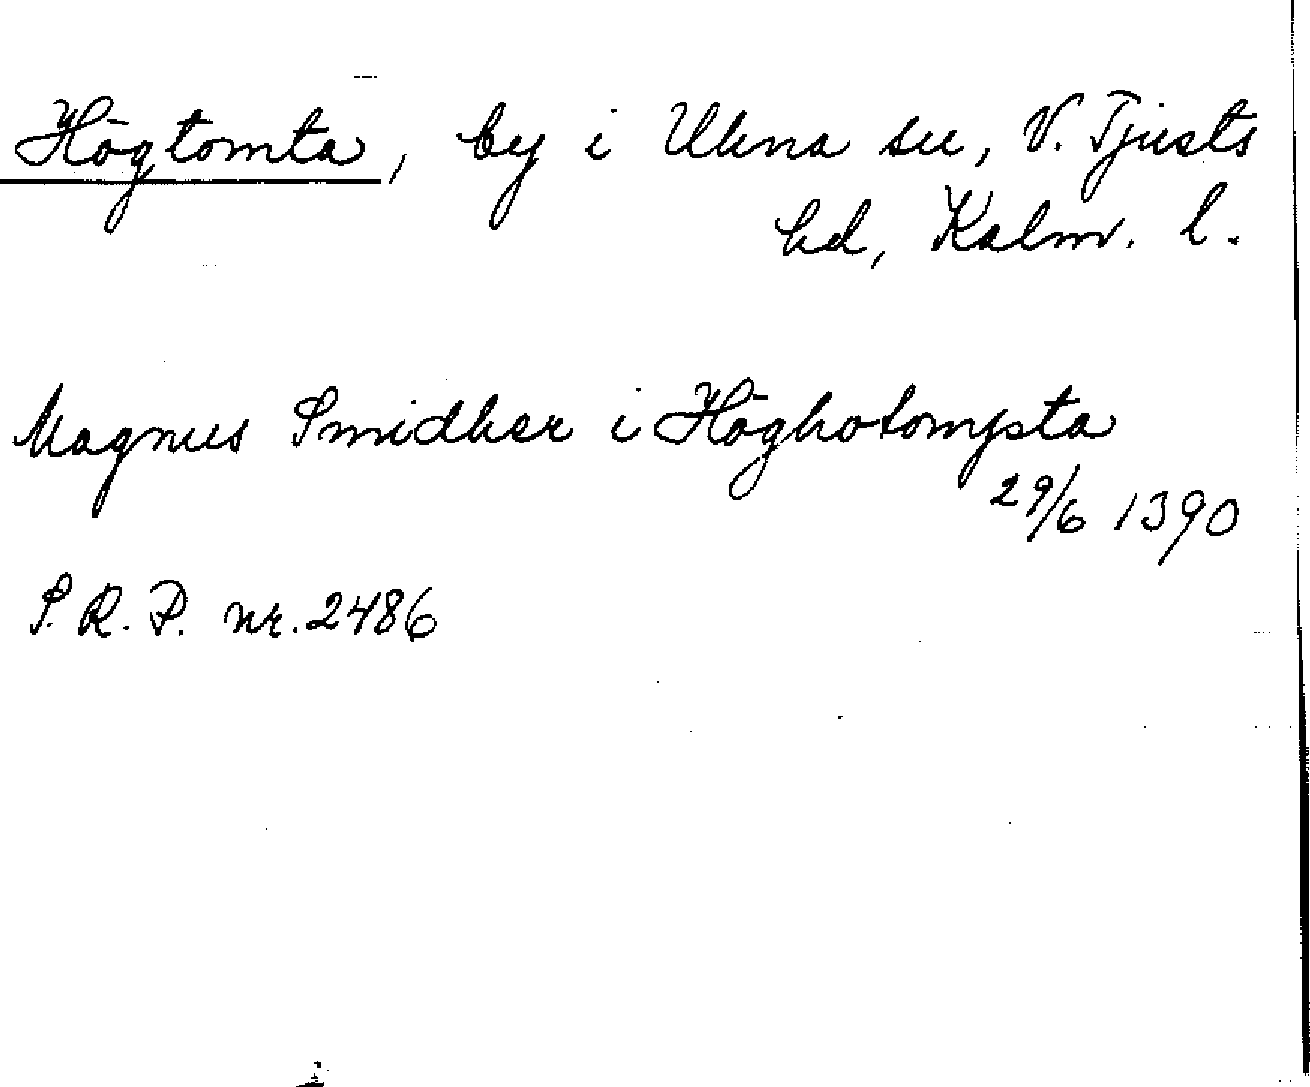 Högtomta, by i Ukna sn, V. Tjusts
hd, Kalm. l.
Magnus Smidher i Höghotompta
29/6 1390
S. R. P. nr. 2486